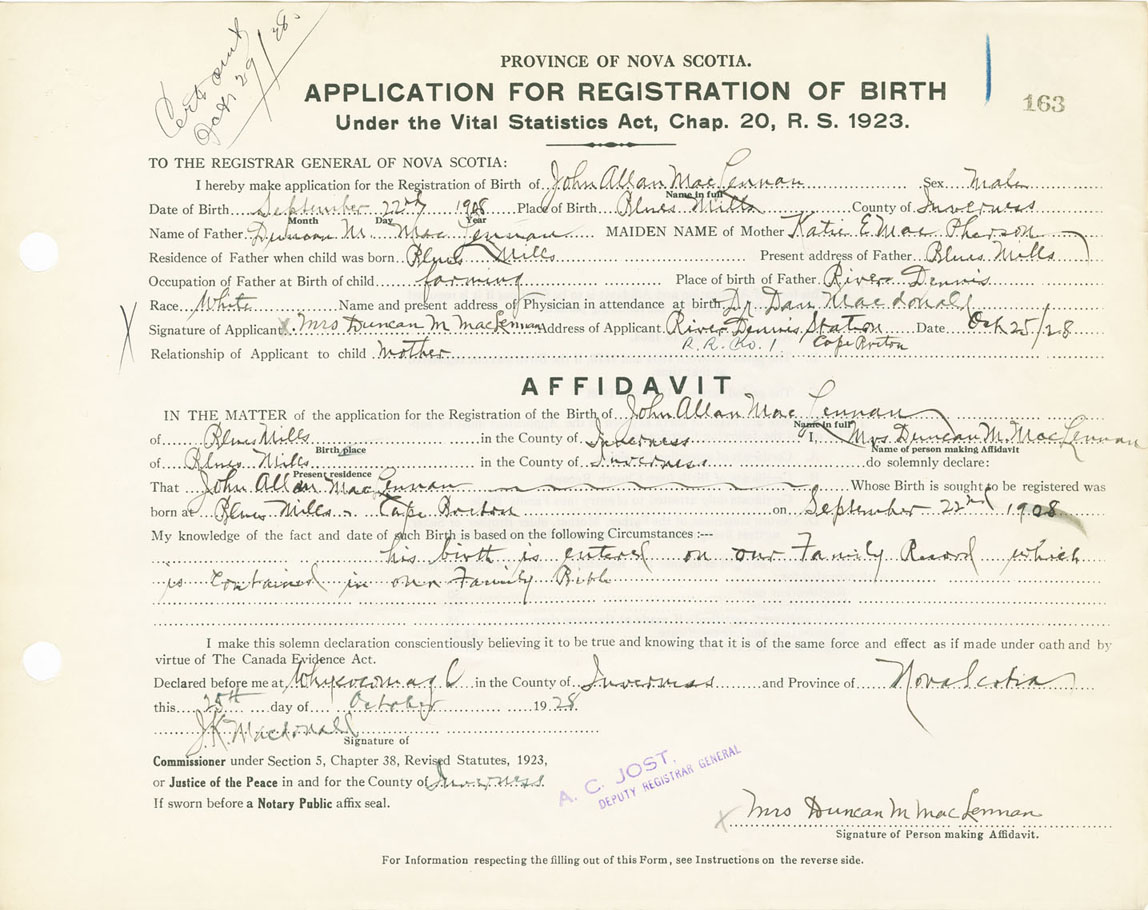 Cert sent
Oct 29/28.
PROVINCE OF NOVA SCOTIA.
APPLICATION FOR REGISTRATION OF BIRTH
163
Under the Vital Statistics Act, Chap. 20, R. S. 1923.
TO THE REGISTRAR GENERAL OF NOVA SCOTIA:
I hereby make application for the Registration of Birth of John Allan MacLennan Sex Male
Name in full
Date of Birth September 22nd 1908 Place of Birth Blues Mills County of Inverness
Month Day Year
Name of Father Duncan M. MacLennan MAIDEN NAME of Mother Katie E. MacPherson
Residence of Father when child was born Blues Mills Present address of Father Blues Mills
Occupation of Father at Birth of child farming Place of birth of Father River Dennis
Race White Name and present address of Physician in attendance at birth Dr. Dan Macdonald
X Signature of Applicant x Mrs Duncan M MacLennan Address of Applicant River Dennis Station Date Oct 25/28
R. R. No. 1. Cape Breton
Relationship of Applicant to child Mother
AFFIDAVIT
IN THE MATTER of the application for the Registration of the Birth of John Allan MacLennan
Name in full
of Blues Mills in the County of Inverness I, Mrs. Duncan M. MacLennan
Birth place Name of person making Affidavit
of Blues Mills in the County of Inverness do solemnly declare:
Present residence
That John Allan MacLennan Whose Birth is sought to be registered was
born at Blues Mills - Cape Breton on September 22nd 1908
My knowledge of the fact and date of such Birth is based on the following Circumstances :---
his birth is entered on our Family Record which
is contained in our Family Bible
I make this solemn declaration conscientiously believing it to be true and knowing that it is of the same force and effect as if made under oath and by
virtue of The Canada Evidence Act.
Declared before me at Whycocomagh in the County of Inverness and Province of Nova Scotia
this 25th day of October 1928.
J. K. Macdonald
Signature of
Commissioner under Section 5, Chapter 38, Revised Statutes, 1923,
or Justice of the Peace in and for the County of Inverness.
If sworn before a Notary Public affix seal.
A. C. JOST,
DEPUTY REGISTRAR GENERAL
x Mrs Duncan M MacLennan
Signature of Person making Affidavit.
For Information respecting the filling out of this Form, see Instructions on the reverse side.